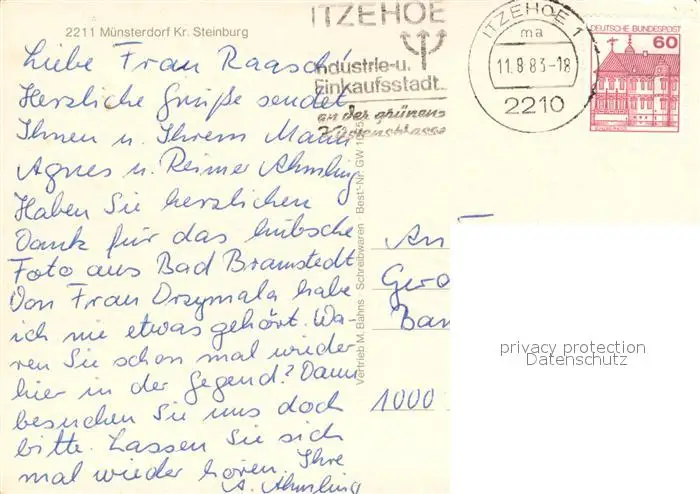 2211 Münsterdorf Kr. Steinburg
ITZEHOE
Industrie-u.
Einkaufsstadt
an der grünen
Küstenstrasse
ITZEHOE 1
ma
11.8.83-18
2210
DEUTSCHE BUNDESPOST
60
Liebe Frau Raasch!
Herzliche Grüße sendet
Ihnen u. Ihrem Mann
Agnes u. Reimer Ahmling
Haben Sie herzlichen
Dank für das hübsche
Foto aus Bad Bramstedt
Von Frau Drzymala habe
ich nie etwas gehört. Wa-
ren Sie schon mal wieder
hier in der Gegend? Dann
besuchen Sie uns doch
bitte. Lassen Sie sich
mal wieder hören. Ihre
A. Ahmling
Vertrieb M. Bahns Schreibwaren · Best.-Nr. GW
An
Gero
Bam
1000
privacy protection
Datenschutz